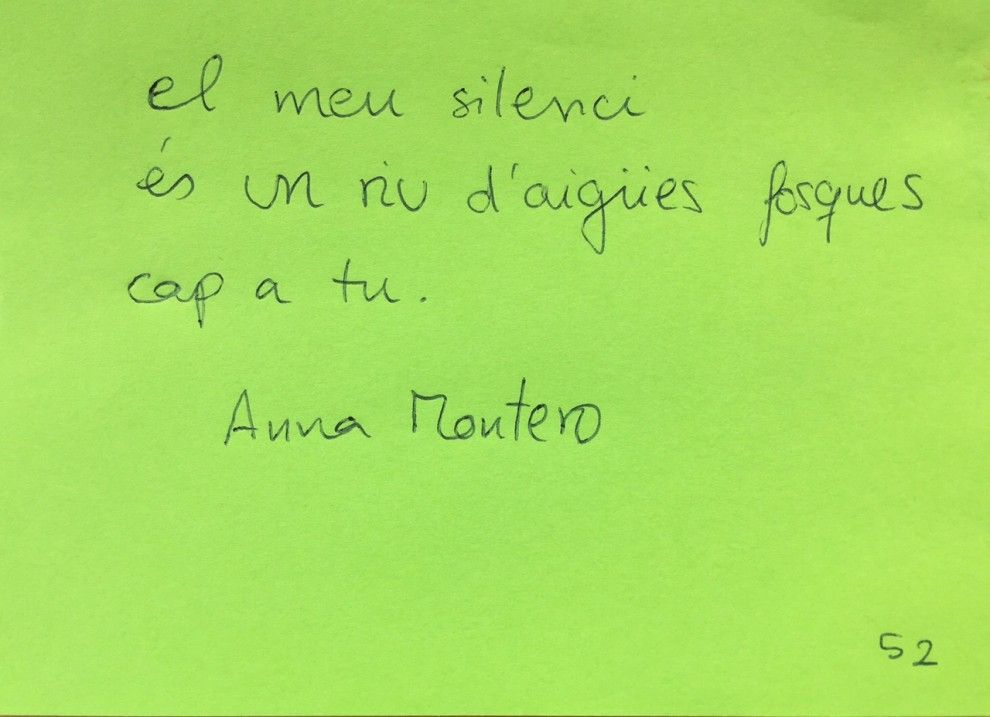 el meu silenci
és un riu d'aigües fosques
cap a tu.
Anna Montero
52